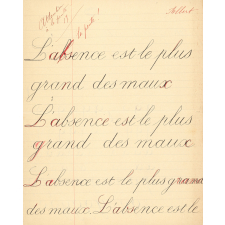 L'absence est le plus
grand des maux
L'absence est le plus
grand des maux
L'absence est le plus grand
des maux. L'absence est le